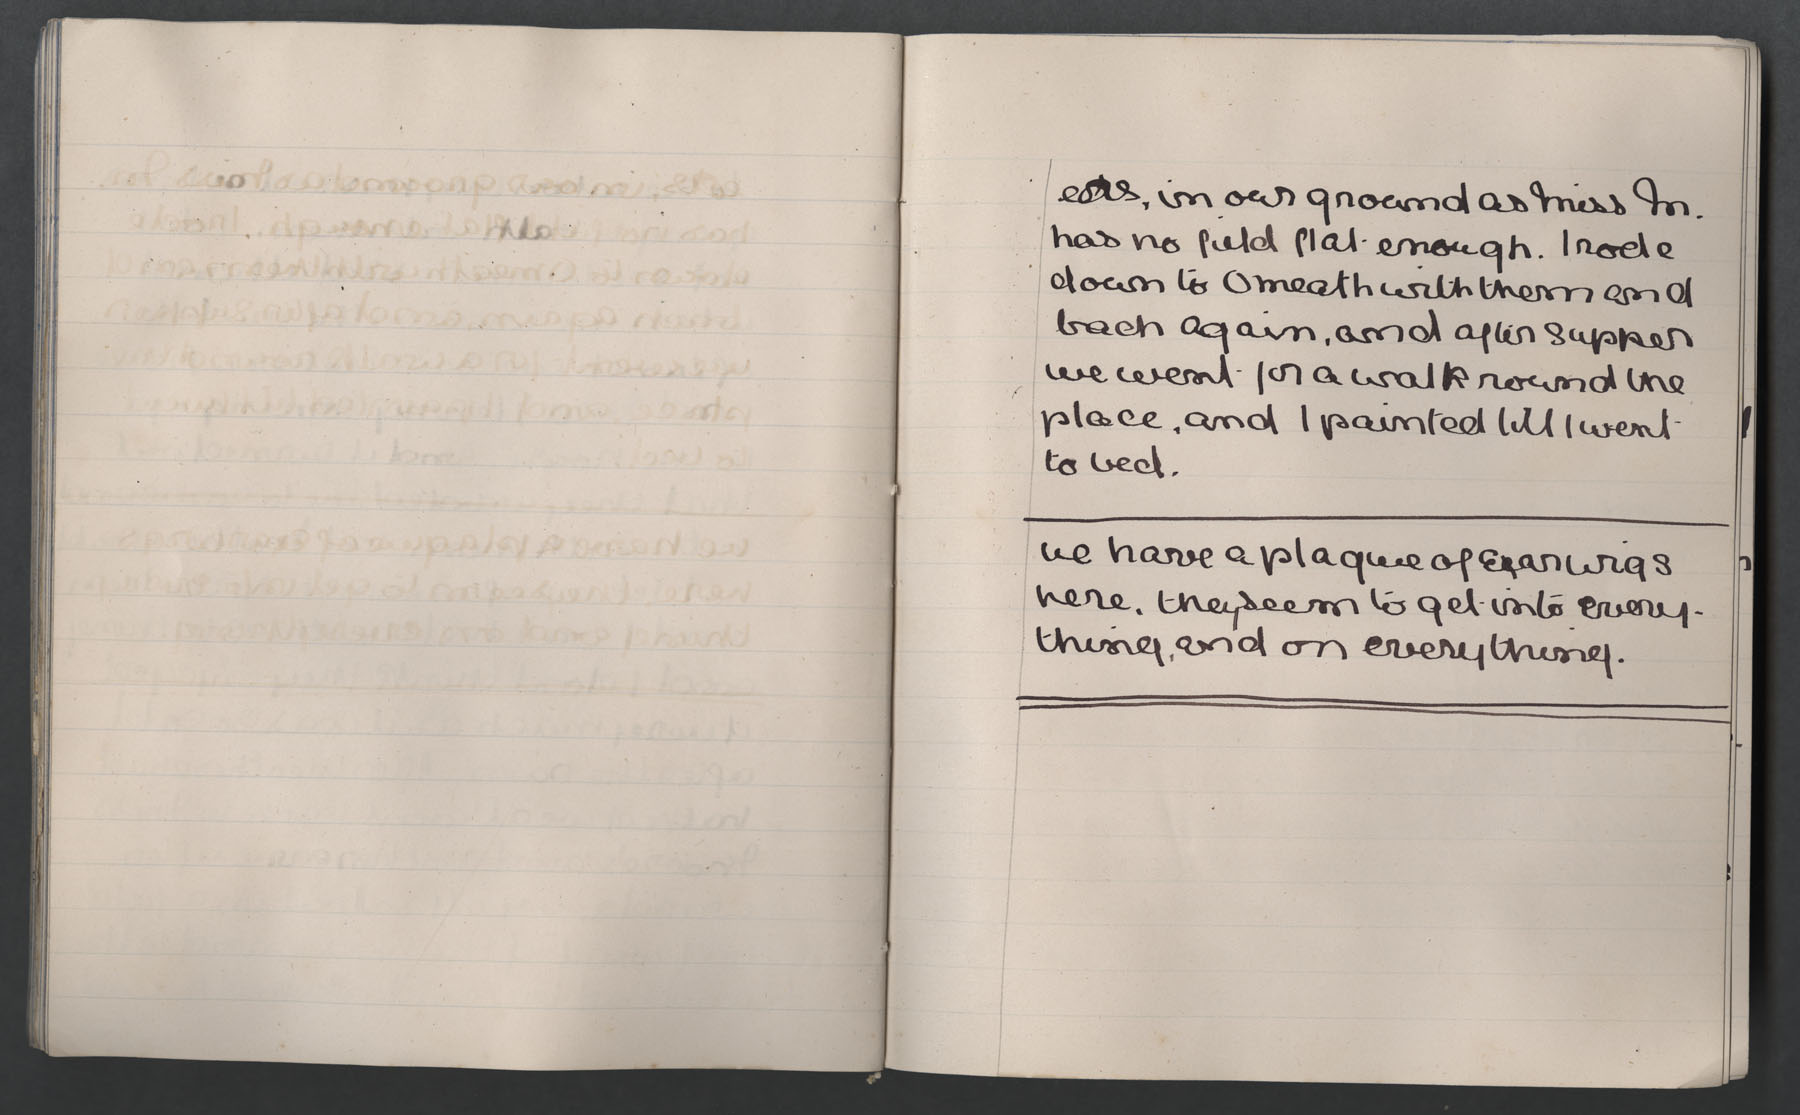 in our ground as Miss M.
has no field flat enough. I rode
down to Omeath with them and
back again, and after supper
we went for a walk round the
place, and I painted till I went
to bed.
we have a plague of Earwigs
here. they seem to get into every-
thing, and on everything.